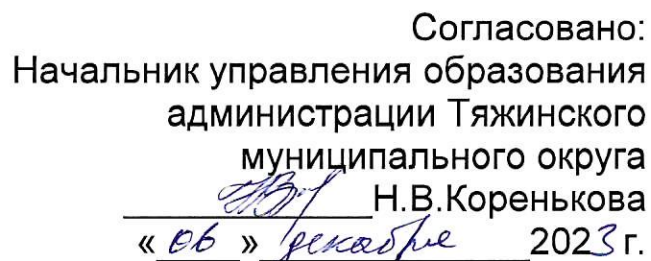 Согласовано:
Начальник управления образования
администрации Тяжинского
муниципального округа
Н.В.Коренькова
« 06 » декабря 2023 г.